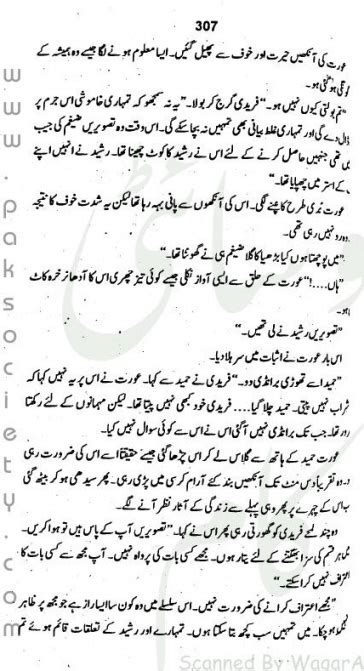 307
عورت کی آنکھیں حیرت اور خوف سے پھیل گئیں۔ ایسا معلوم ہونے لگا جیسے وہ ہمیشہ کے
ہوگئی ہو۔
"تم بولتی کیوں نہیں ہو۔" فریدی گرج کر بولا۔ "یہ نہ سمجھو کہ تمہاری خاموشی اس جرم پر
ڈال دے گی اور تمہاری غلط بیانی بھی تمہیں نہ بچا سکے گی۔ اس وقت وہ تصویریں ضیغم کی جیب
تھی جنہیں حاصل کرنے کے لئے اس نے رشید کا کوٹ چھینا تھا۔ رشید نے انہیں اپنے
کے استر میں چھپایا تھا۔"
عورت بُری طرح کانپنے لگی۔ اس کی آنکھوں سے پانی بہہ رہا تھا لیکن یہ شدت خوف کا نتیجہ
وہ رو نہیں رہی تھی۔
"میں پوچھتا ہوں کیا بڑھیا کا گلا ضیغم ہی نے گھونٹا تھا۔"
"ہاں....!" عورت کے حلق سے ایسی آواز نکلی جیسے کوئی تیز چھری اس کا آدھا نرخرہ کاٹ
ہو۔
"تصویریں رشید نے لی تھیں۔"
اس بار عورت نے اثبات میں سر ہلا دیا۔
"حمید اسے تھوڑی برانڈی دو۔" فریدی نے حمید سے کہا۔ عورت نے اس پر یہ نہیں کہا کہ
شراب نہیں پیتی۔ حمید چلا گیا.... فریدی خود کبھی نہیں پیتا تھا۔ لیکن مہمانوں کے لئے رکھتا
ضرور تھا۔ جب تک برانڈی نہیں آگئی اس نے اس سے کوئی سوال نہیں کیا۔
عورت حمید کے ہاتھ سے گلاس لے کر اس طرح چڑھا گئی جیسے حقیقتاً اسے اس کی ضرورت رہی
وہ تقریباً دس منٹ تک آنکھیں بند کئے آرام کرسی میں پڑی رہی۔ پھر سیدھی ہو کر بیٹھ گئی
اب اس کے چہرے پر پھر وہی پہلے سے زندگی کے آثار نظر آنے لگے۔
وہ چند لمحے فریدی کو گھورتی رہی پھر اس نے کہا۔ "تصویریں آپ کے پاس ہیں تو ہوا کریں۔
ہر قسم کی سزا بھگتنے کے لئے تیار ہوں۔ مجھے کسی بات کی پرواہ نہیں۔ آپ مجھ سے کسی بات کا
اعتراف نہیں کرا سکتے۔"
"مجھے اعتراف کرانے کی ضرورت نہیں۔ اس سلسلے میں وہ کون سا ایسا راز ہے جو مجھ پر ظاہر
ہو چکا۔ میں تمہیں سب کچھ بتا سکتا ہوں۔ تمہارے اور رشید کے تعلقات قائم ہوئے تھے
www.paksociety.com
Scanned By WaqarA